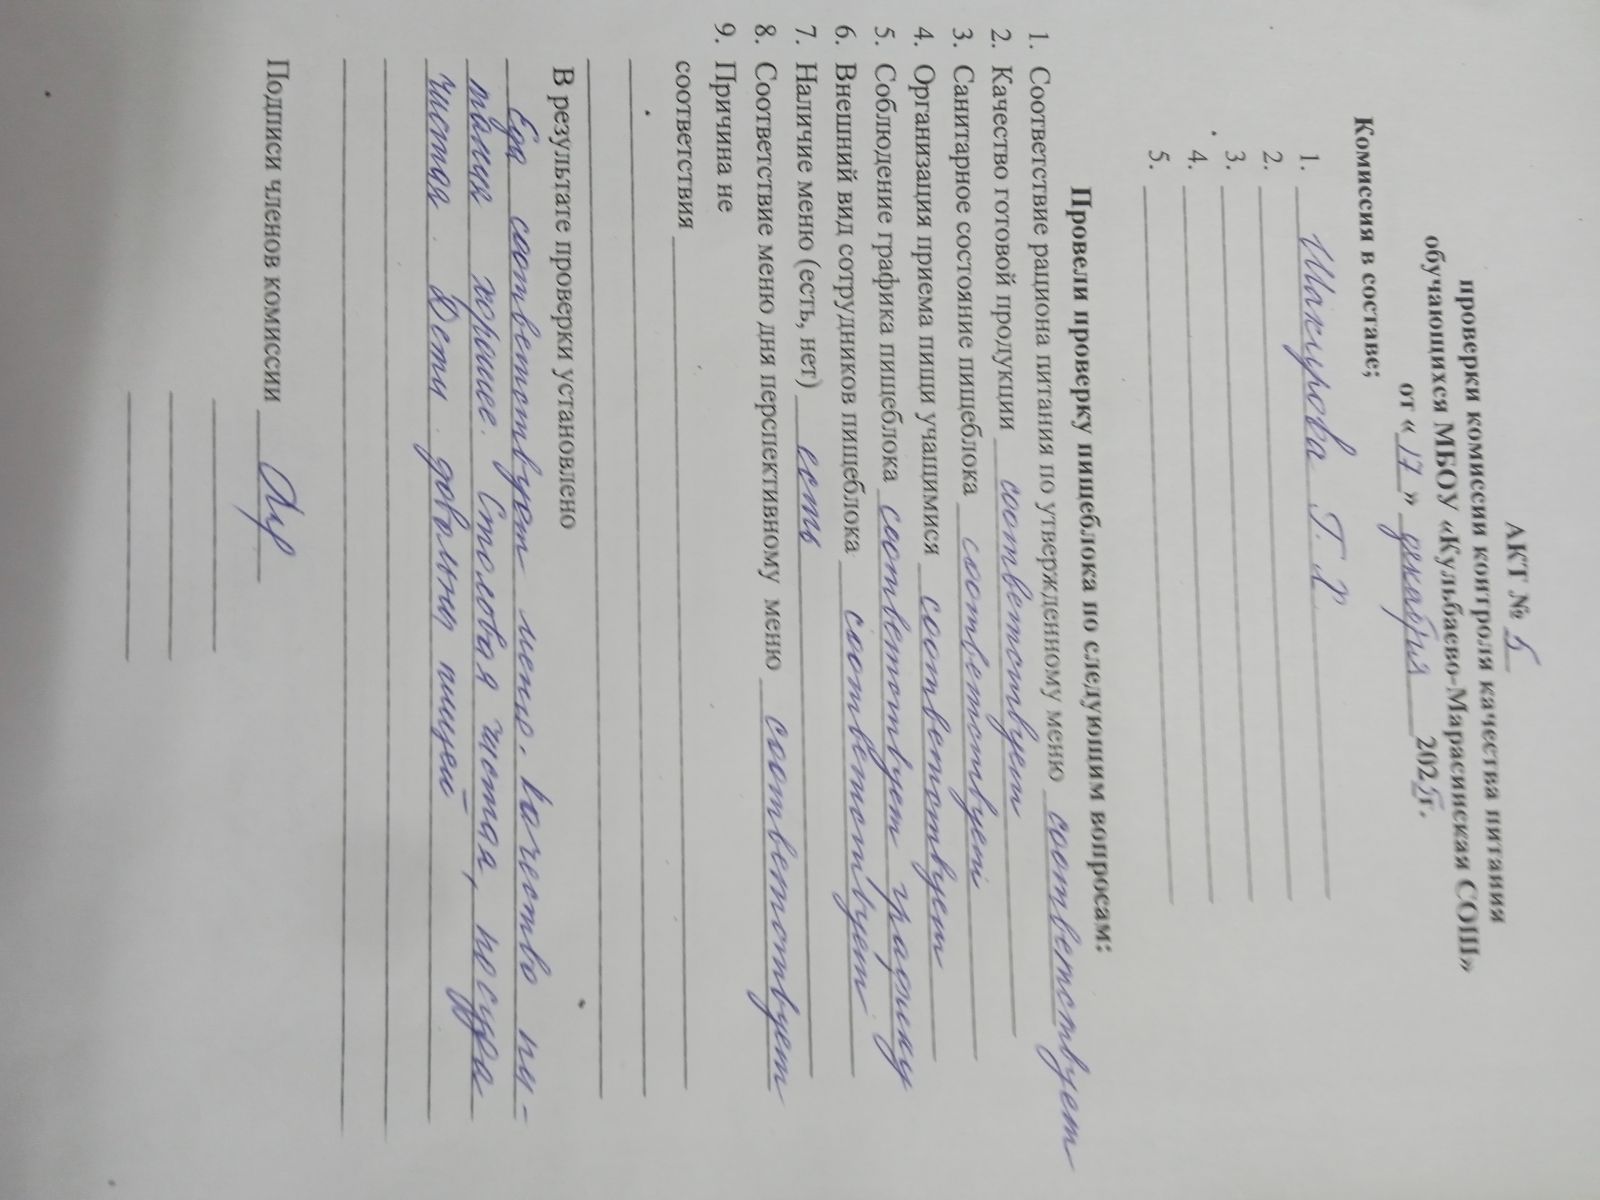 АКТ № 5
проверки комиссии контроля качества питания
обучающихся МБОУ «Кульбаево-Марасинская СОШ»
от « 17 » декабря 2025г.
Комиссия в составе;
1. Шакирова Г. Х
2.
3.
4.
5.
Провели проверку пищеблока по следующим вопросам:
1. Соответствие рациона питания по утвержденному меню соответствует
2. Качество готовой продукции соответствует
3. Санитарное состояние пищеблока соответствует
4. Организация приема пищи учащимися соответствует
5. Соблюдение графика пищеблока соответствует графику
6. Внешний вид сотрудников пищеблока соответствует
7. Наличие меню (есть, нет) есть
8. Соответствие меню дня перспективному меню соответствует
9. Причина не
соответствия
В результате проверки установлено
Еда соответствует меню. Качество пи-
тания хорошее. Столовая чистая, посуда
чистая. Дети довольны пищей
Подписи членов комиссии